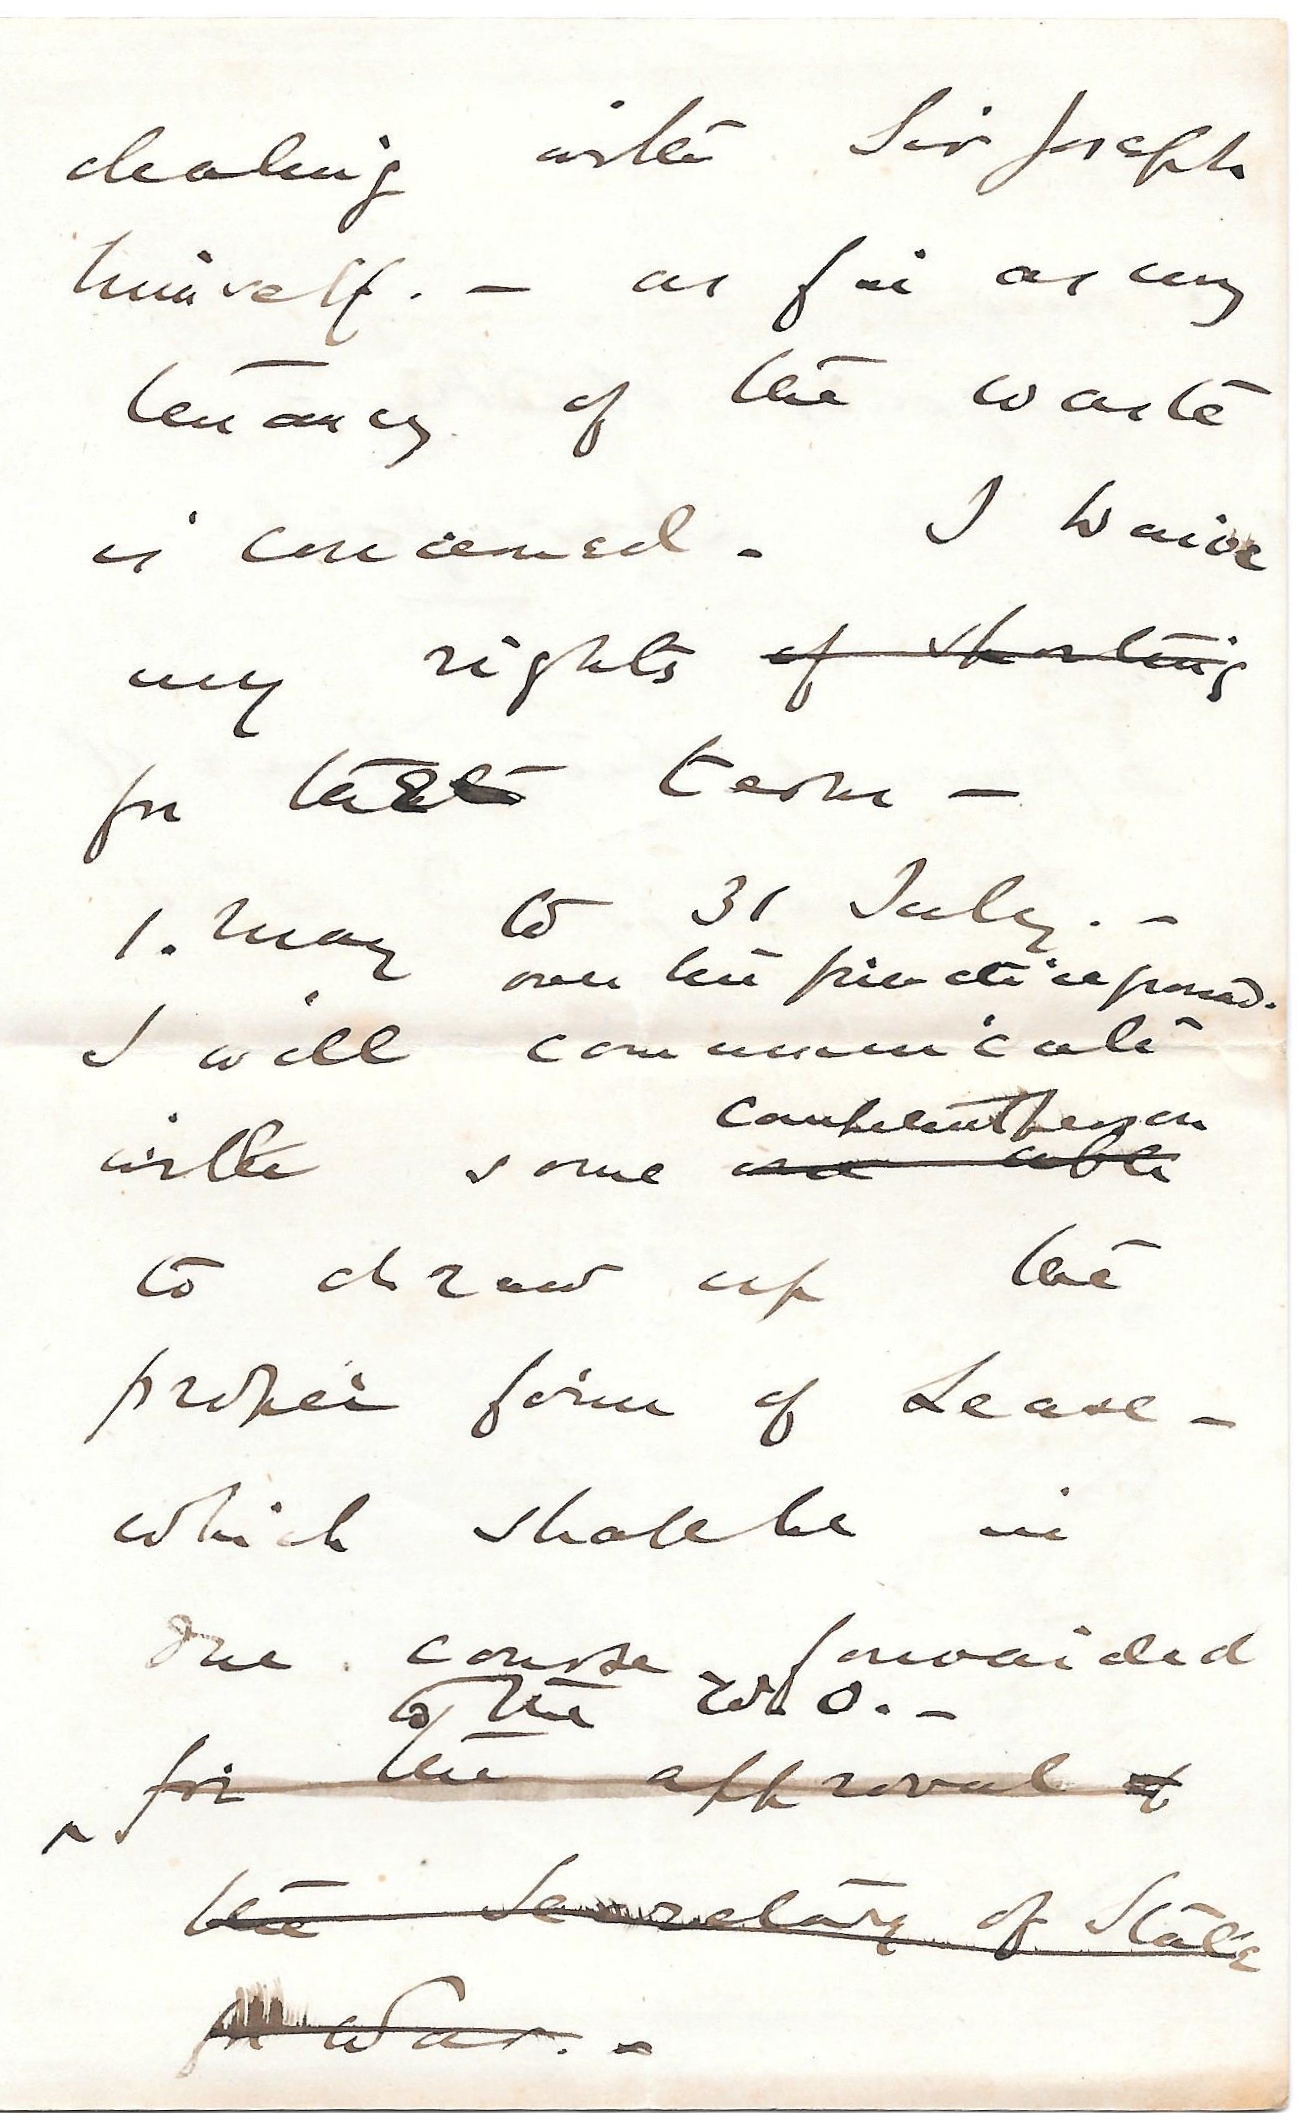 dealing with Sir Joseph
himself. - as far as my
tenancy of the waste
is concerned - I waive
my rights of shooting
for that term -
1. May to 31 July. -
over the practice ground.
I will communicate
competent person
with some one able
to draw up the
proper form of Lease -
which shall be in
due course forwarded
to the W.O. -
for the approval of
the Secretary of State
for War. -